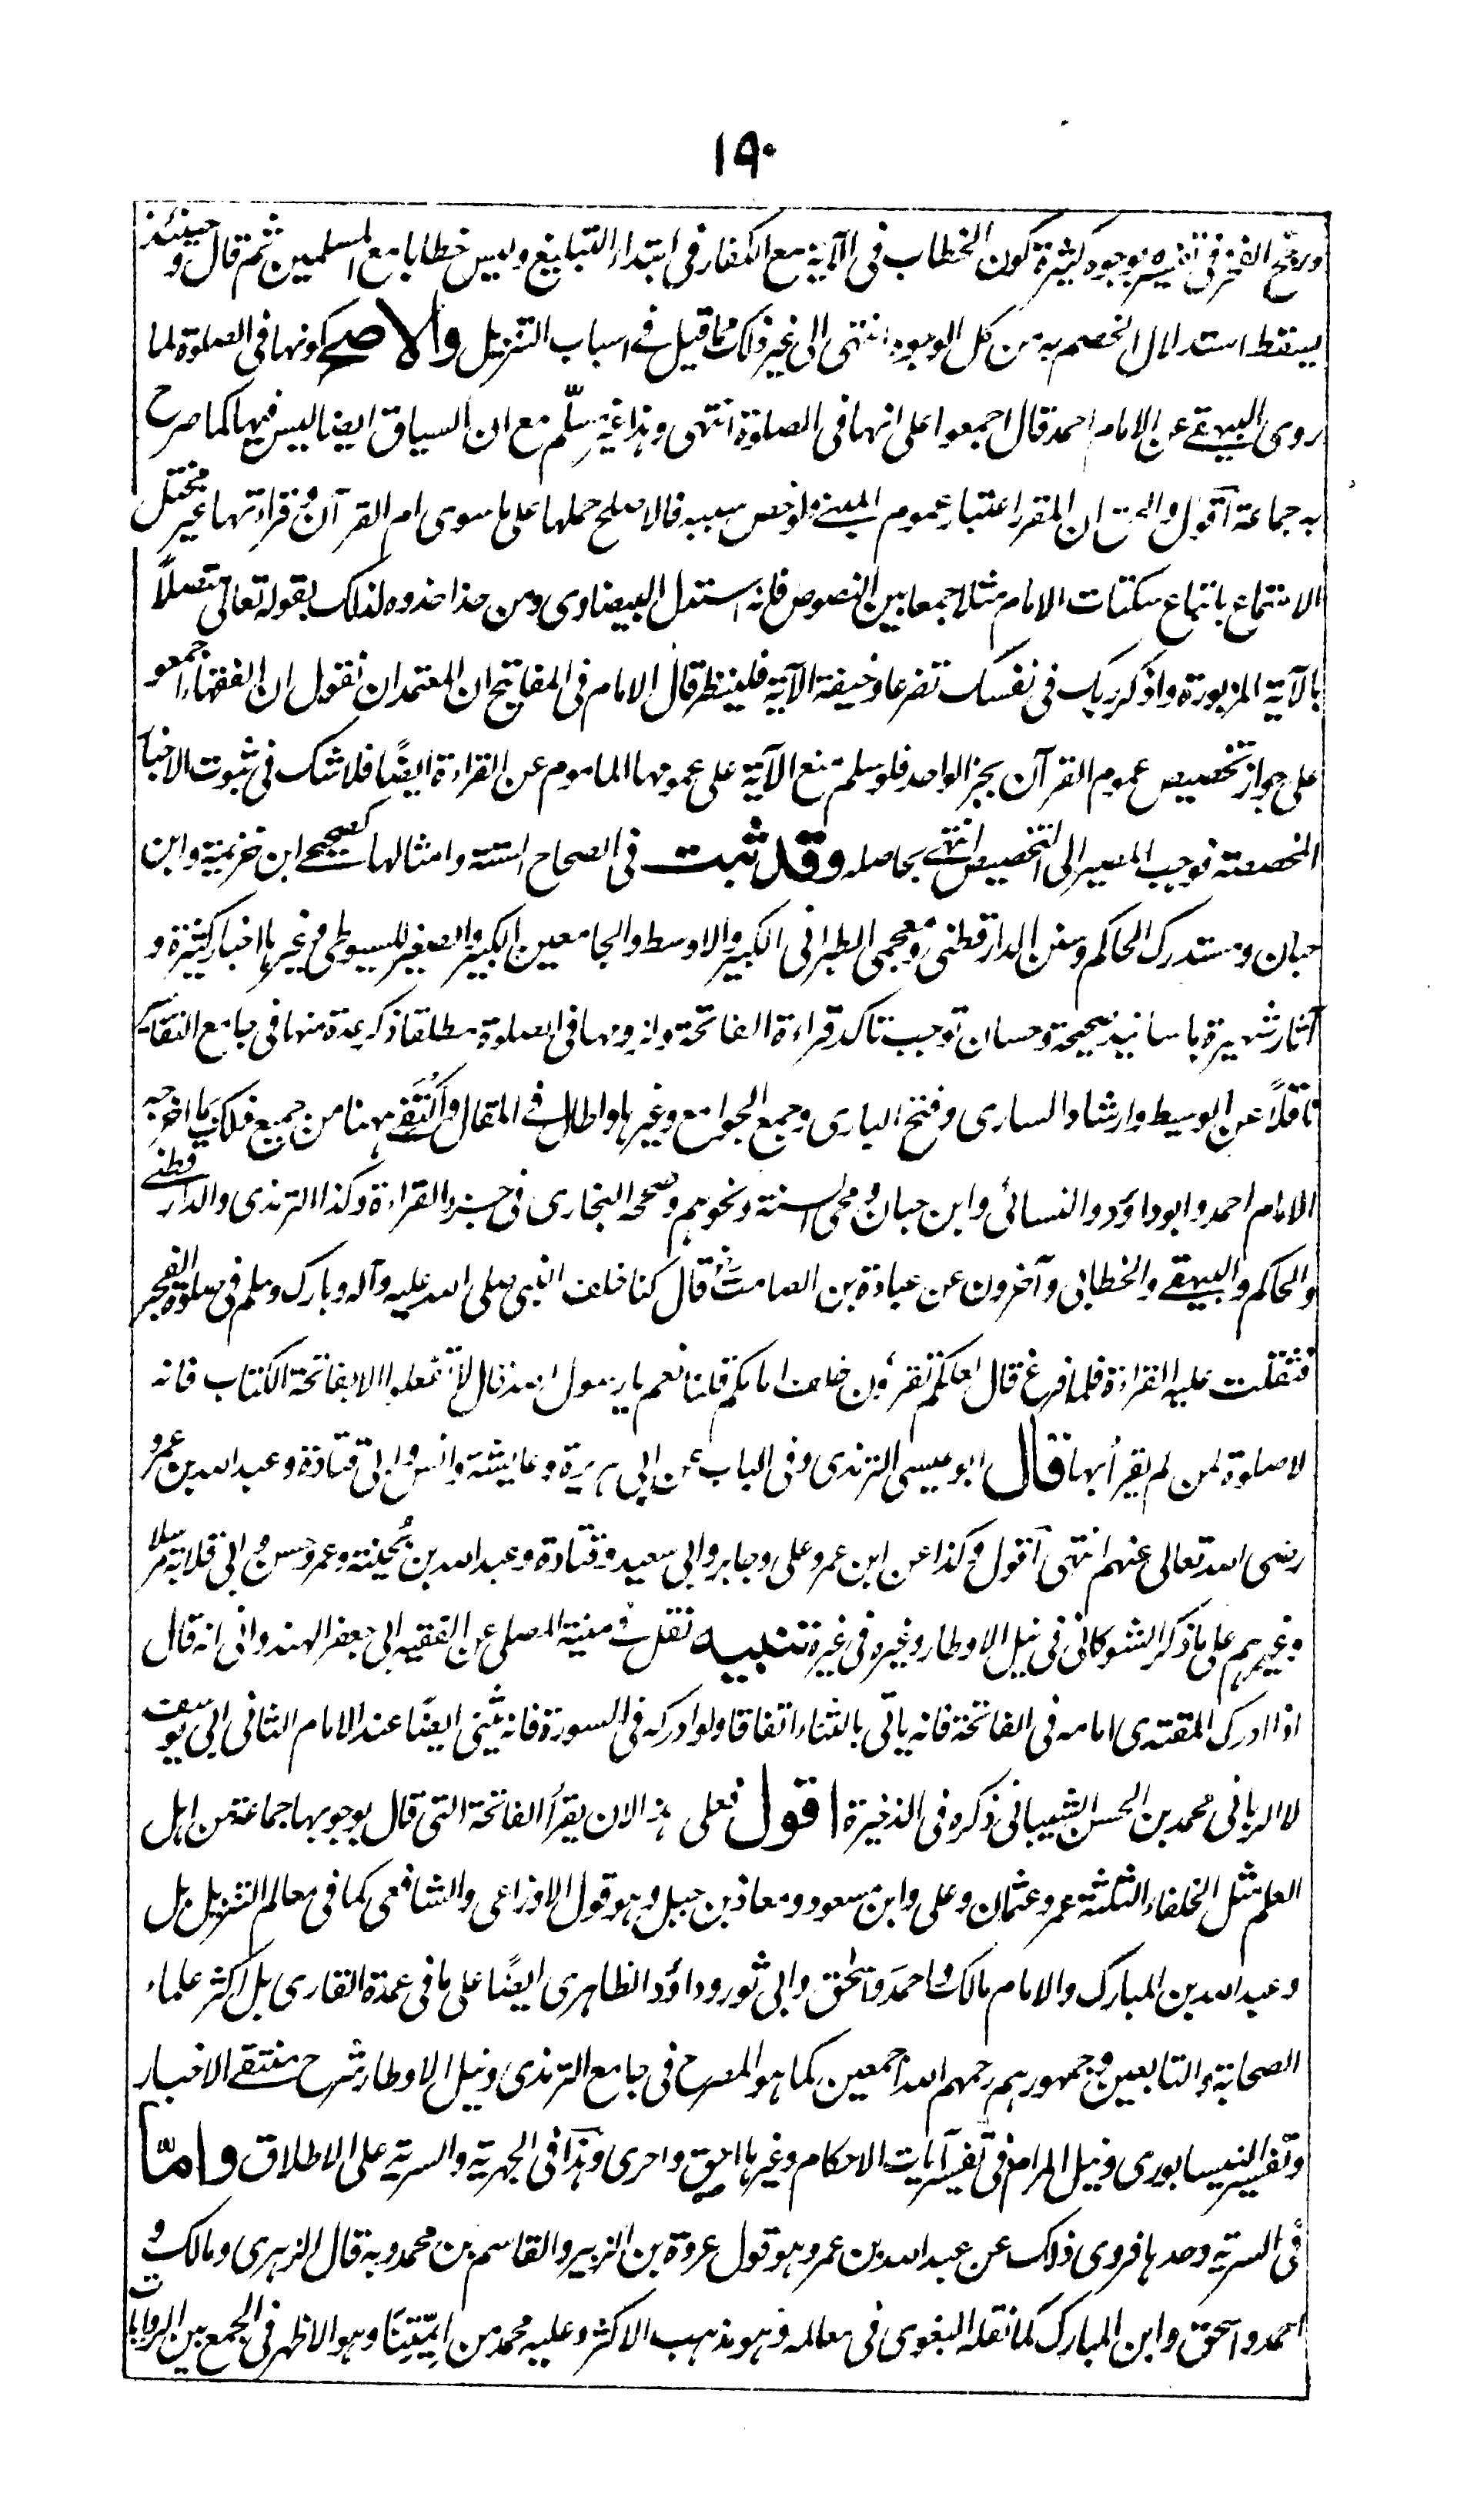 ١٩٠
ورجح الفخر فى تفسيره بوجوه كثيرة كون الخطاب فى الآية مع الكفار فى ابتداء التبليغ وليس خطابا مع المسلمين ثم قال وحينئذ
يسقط استدلال الخصم به من كل الوجوه انتهى الى غير ذلك مما قيل فى اسباب التنزيل والاصح كونها فى الصلوة لما
روى البيهقى عن الامام احمد قال اجمعوا على انها فى الصلوة انتهى وهذا غير مسلّم مع ان السياق ايضا ليس فيها كما صرح
به جماعة اقول والحق ان المقرر اعتبار عموم المبنى ولو خص سببه فالاصلح حملها على ما سوى ام القرآن وقراءتها غير مختل
الاستماع باتباع سكتات الامام مثلا جمعا بين النصوص فانه استدل البيضاوى ومن حذا حذوه لذلك بقوله تعالى متصلاً
بالآية المزبورة واذكر ربك فى نفسك تضرعا وخيفة الآية فلينظر قال الامام فى المفاتيح ان المعتمد ان نقول ان الفقهاء اجمعو
على جواز تخصيص عموم القرآن بخبر الواحد فلو سلم منع الآية على عمومها الماموم عن القراءة ايضًا فلا شك فى ثبوت الاخبار
المخصصة فوجب المصير الى التخصيص انتهى بحاصله وقد ثبت فى الصحاح الستة وامثالها كصحيحى ابن خزيمة وابن
حبان ومستدرك الحاكم وسنن الدارقطنى ومعجمى الطبرانى الكبير والاوسط والجامعين الكبير والصغير للسيوطى وغيرها اخبار كثيرة و
آثار شهيرة باسانيد صحيحة وحسان توجب تاكد قراءة الفاتحة ولزومها فى الصلوة مطلقا ذكر عدة منها فى جامع التفاسير
ناقلاً عن الوسيط وارشاد السارى وفتح البارى وجمع الجوامع وغيرها واطال فى المقال واُكتَفى ههنا من جميع ذلك بما اخرجه
الامام احمد وابو داؤد والنسائى وابن حبان ومحى السنة ونحوهم وصححه البخارى فى جزء القراءة وكذا الترمذى والدارقطنى
والحاكم والبيهقى والخطابى وآخرون عن عبادة بن الصامت قال كنا خلف النبى صلى الله عليه وآله وبارك وسلم فى صلوة الفجر
فثقلت عليه القراءة فلما فرغ قال لعلكم تقرؤن خلف امامكم قلنا نعم يا رسول الله قال لا تفعلوا الا بفاتحة الكتاب فانه
لا صلوة لمن لم يقرأ بها قال ابو عيسى الترمذى وفى الباب عن ابى هريرة وعايشة وانس وابى قتادة وعبد الله بن عمرو
رضى الله تعالى عنهم انتهى اقول وكذا عن ابن عمر وعلى وجابر وابى سعيد وقتادة وعبد الله بن بُحينة وعمر وحسن وابى قلابة مرسلا
وغيرهم على ما ذكر الشوكانى فى نيل الاوطار وغيره فى غيره تنبيه نقل فى منية المصلى عن الفقيه ابى جعفر الهندوانى انه قال
اذا ادرك المقتدى امامه فى الفاتحة فانه ياتى بالثناء اتفاقا ولو ادركه فى السورة فانه يثنى ايضًا عند الامام الثانى ابى يوسف
لا الربانى محمد بن الحسن الشيبانى ذكره فى الذخيرة اقول فعلى هذا لان يقرأ الفاتحة التى قال بوجوبها جماعة من اهل
العلم مثل الخلفاء الثلثة عمر وعثمان وعلى وابن مسعود ومعاذ بن جبل وهو قول الاوزاعى والشافعى كما فى معالم التنزيل بل
وعبد الله بن المبارك والامام مالك واحمد واسحٰق وابى ثور وداؤد الظاهرى ايضًا على ما فى عمدة القارى بل اكثر علماء
الصحابة والتابعين وجمهورهم رحمهم الله اجمعين كما هو المصرح فى جامع الترمذى ونيل الاوطار شرح منتقى الاخبار
وتفسير النيسابورى ونيل المرام فى تفسير آيات الاحكام وغيرها احق واحرى وهذا فى الجهرية والسرية على الاطلاق وامّا
فى السرية وحدها فروى ذلك عن عبد الله بن عمر وهو قول عروة بن الزبير والقاسم بن محمد وبه قال الزهرى ومالك و
احمد واسحق وابن المبارك كما نقله البغوى فى معالمه وهو مذهب الاكثر وعليه محمد من ائِمّتِنَا وهو الاظهر فى الجمع بين الروايات